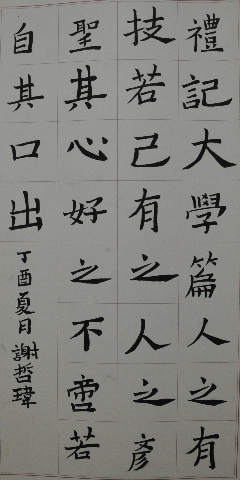 禮記大學篇人之有
技若己有之人之彥
聖其心好之不啻若
自其口出
丁酉夏月謝哲瑋